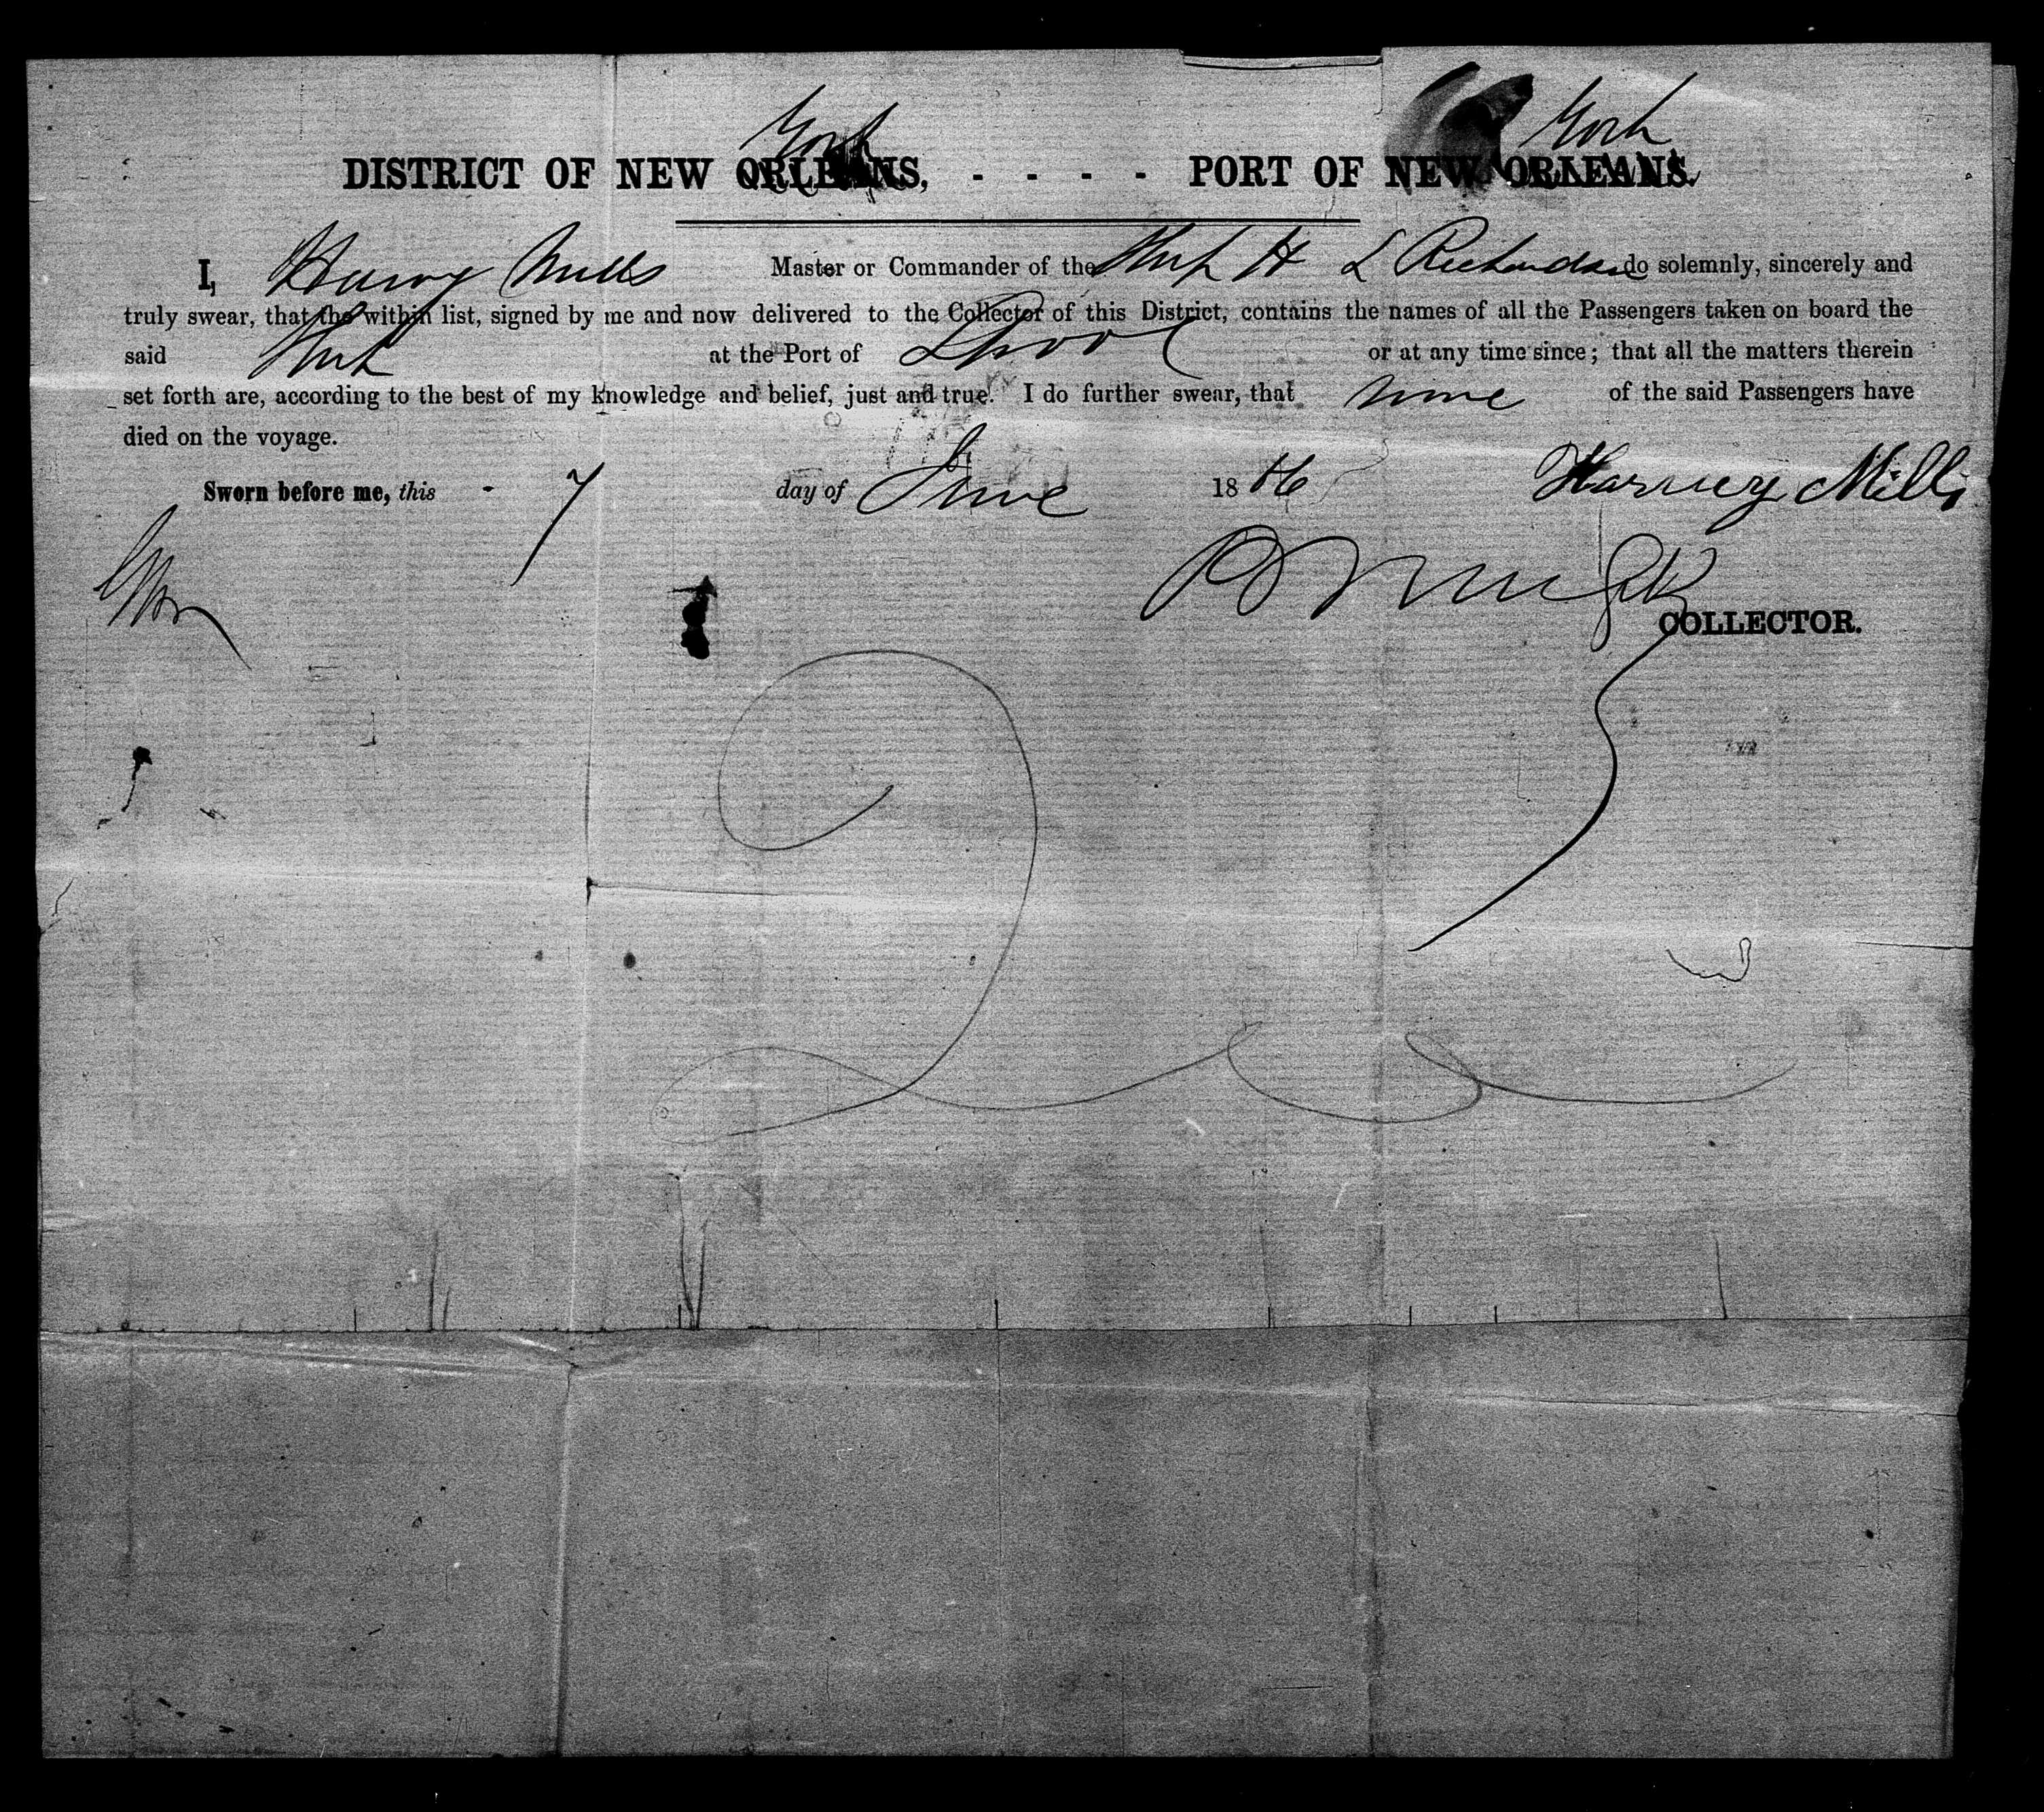 York York
DISTRICT OF NEW ORLEANS, - - - - PORT OF NEW ORLEANS.
I, Harvey Mills Master or Commander of the Ship H L Richardson do solemnly, sincerely and
truly swear, that the within list, signed by me and now delivered to the Collector of this District, contains the names of all the Passengers taken on board the
said Ship at the Port of Lpool or at any time since; that all the matters therein
set forth are, according to the best of my knowledge and belief, just and true. I do further swear, that nine of the said Passengers have
died on the voyage.
Sworn before me, this 7 day of June 18 Harvey Mills
COLLECTOR.